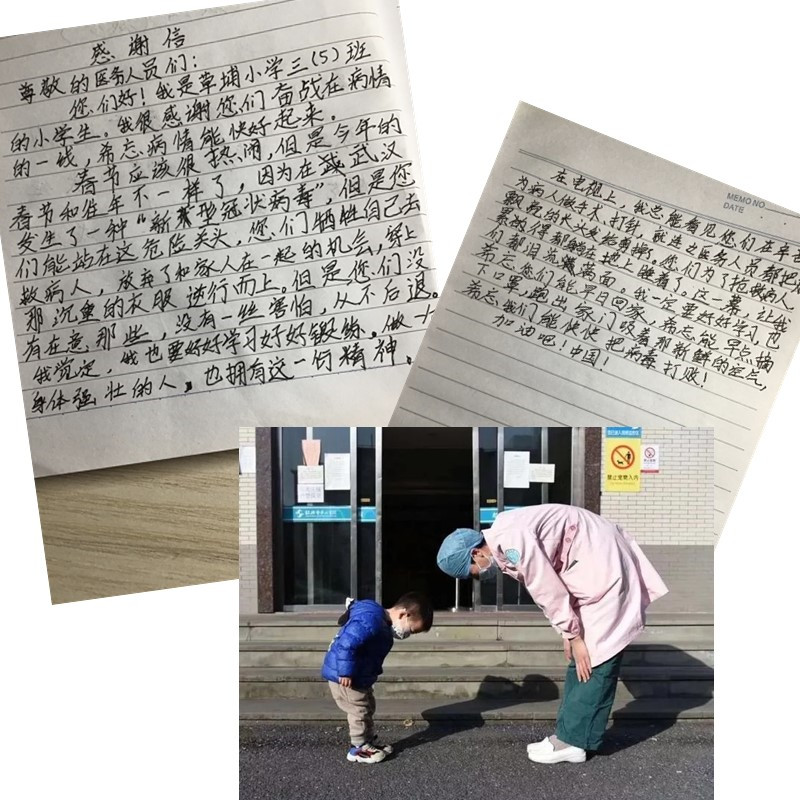 感谢信
尊敬的医务人员们：
您们好！我是草埔小学三(5)班
的小学生。我很感谢您们奋战在病情
的一线，希忘病情能快好起来。
春节应该很热闹，但是今年的
春节和往年不一样了，因为在武汉
发生了一种“新型冠状病毒”，但是您
们能站在这危险关头，您们牺牲自己去
救病人，放弃了和家人在一起的机会，穿上
那沉重的衣服逆行而上。但是您们没
有在意那些，没有一丝害怕，从不后退。
我觉定，我也要好好学习好好锻练。做一个
身体强壮的人，也拥有这一份精神。
MEMO NO.
DATE
在电视上，我总能看见您们在辛苦
为病人做手术、打针，就连女医务人员都把
飘逸的长头发给剪掉了。您们为了抢救病人
累的得都躺在地上睡着了。这一幕，让我
们都泪流满面。我一定要好好学习，也
希忘您们能早日回家，希忘能早点摘
下口罩，跑出家门吸着那新鲜的空气，
希忘我们能快快把病毒打败！
加油吧！中国！
禁止宠物入内